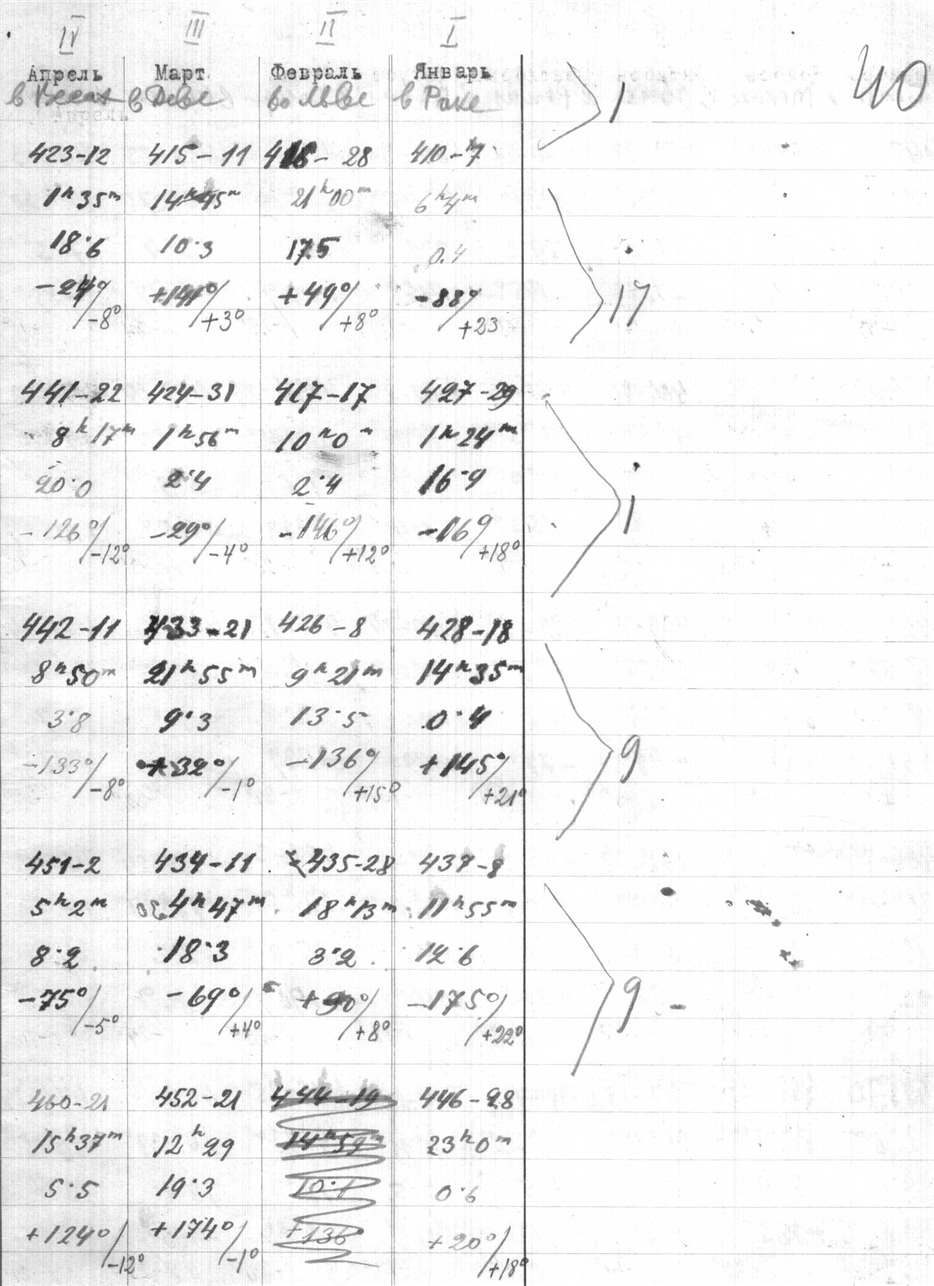 IV III II I
Апрель Март Февраль Январь
в Весах в Деве во Льве в Раке
1
40
423-12 415-11 410-7
1ʰ35ᵐ 14ʰ45ᵐ 21ʰ00ᵐ 6ʰ4ᵐ
18·6 10·3 17.5 0.4
-8° +141°/+3° +49°/+8° -88°/+23
17
441-22 424-31 417-17 427-29
8ʰ17ᵐ 1ʰ56ᵐ 10ʰ0ᵐ 1ʰ24ᵐ
20·0 2·4 2·4 16·9
-126°/-12° -29°/-4° -146°/+12° -16°/+18°
1
442-11 433-21 426-8 428-18
8ʰ50ᵐ 21ʰ55ᵐ 9ʰ21ᵐ 14ʰ35ᵐ
3·8 9·3 13·5 0·4
-133°/-8° +32°/-1° -136°/+15° +145°/+21°
9
451-2 434-11 435-28 437-8
5ʰ2ᵐ 4ʰ47ᵐ 18ʰ13ᵐ 11ʰ55ᵐ
8·2 18·3 3·2 12·6
-75°/-5° -69°/+4° +90°/+8° -175°/+22°
9 -
460-21 452-21 444-19 446-28
15ʰ37ᵐ 12ʰ29 14ʰ59ᵐ 23ʰ0ᵐ
5·5 19·3 10·1 0·6
+124°/-12° +174°/-1° +136 +20°/+18°